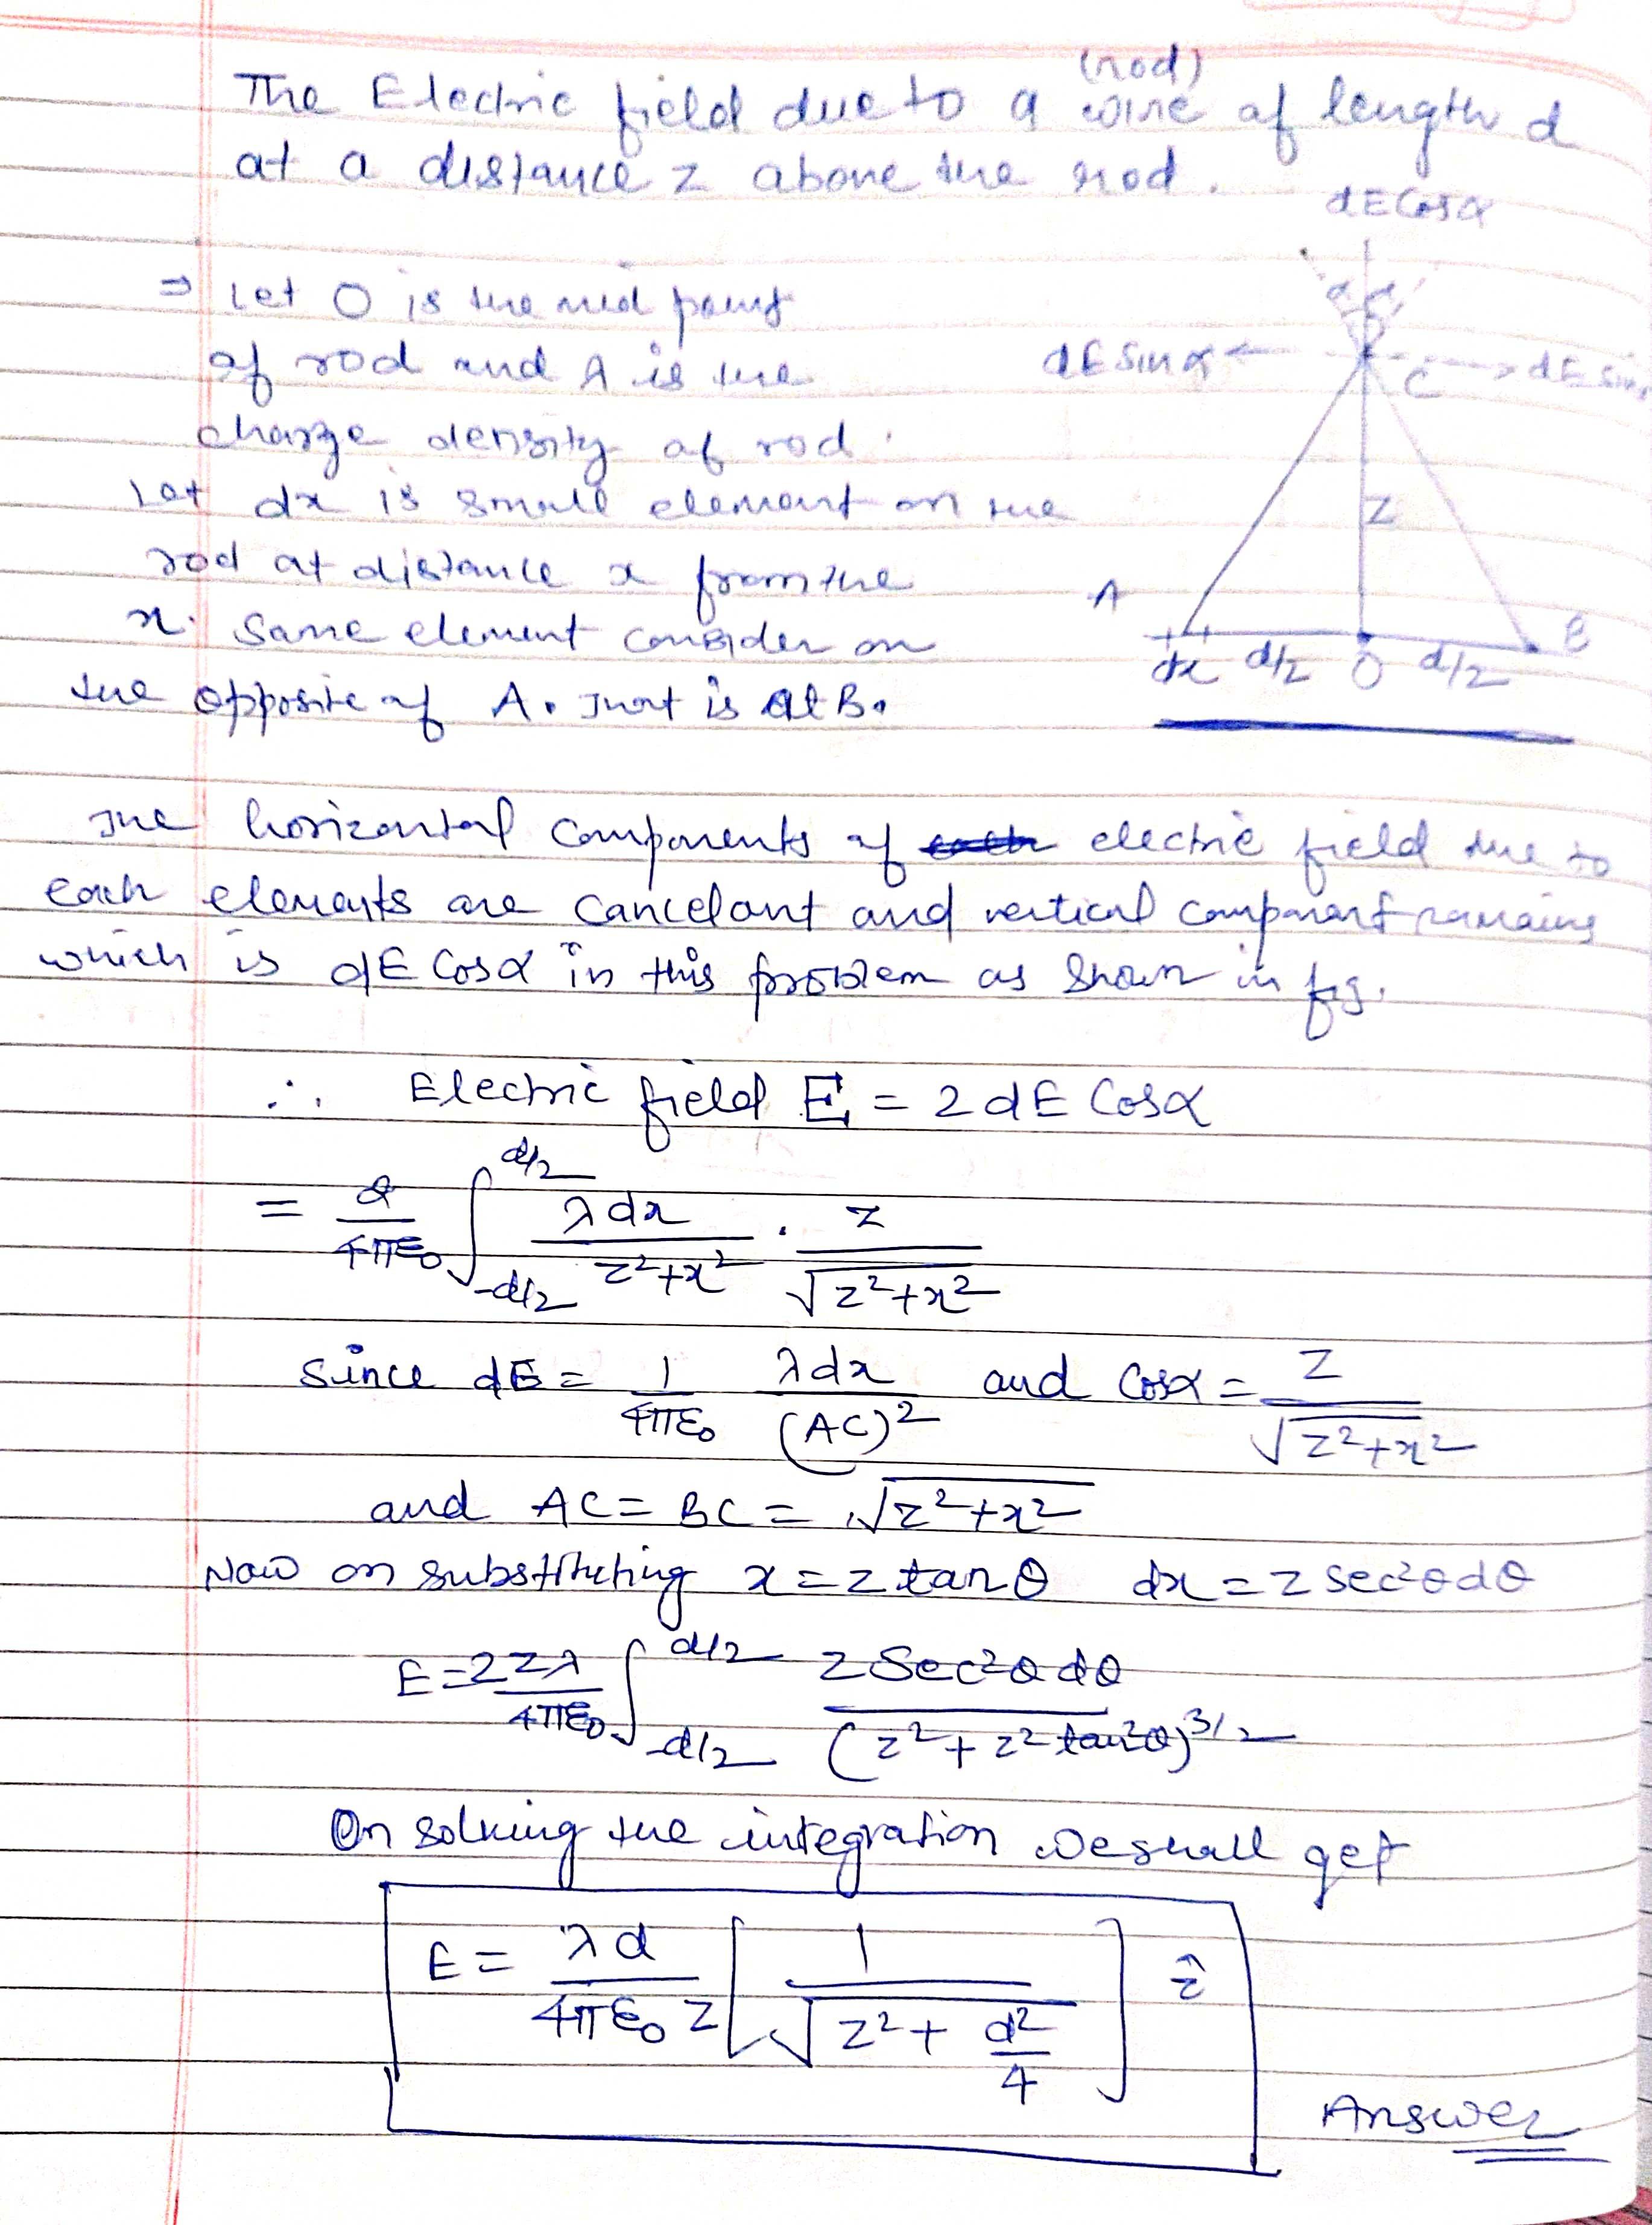 (rod)
The Electric field due to a wire of length d
at a distance z above the rod.
dE Cosα
⇒ Let O is the mid point
α α
of rod and λ is the
dE Sinα
C
dE Sin
charge density of rod.
Let dx is small element on the
Z
rod at distance x from the
A
x. Same element consider on
B
dx d/2 O d/2
the opposite of A. That is at B.
The horizontal components of electric field due to
each elements are cancelout and vertical component remains
which is dE Cosα in this problem as shown in fig.
∴ Electric field E = 2 dE Cosα
= 2/4πε₀ ∫_{-d/2}^{d/2} λdx/(z²+x²) · z/√(z²+x²)
Since dE = 1/4πε₀ λdx/(AC)² and Cosα = z/√(z²+x²)
and AC = BC = √(z²+x²)
Now on substituting x = z tanθ dx = z sec²θ dθ
E = 2zλ/4πε₀ ∫_{-d/2}^{d/2} z Sec²θ dθ/(z²+z² tan²θ)^{3/2}
On solving the integration we shall get
E = λd/4πε₀z [1/√(z²+d²/4)] ẑ
Answer